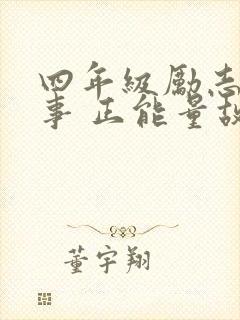 四年級勵志
事 正能量故
董宇翔